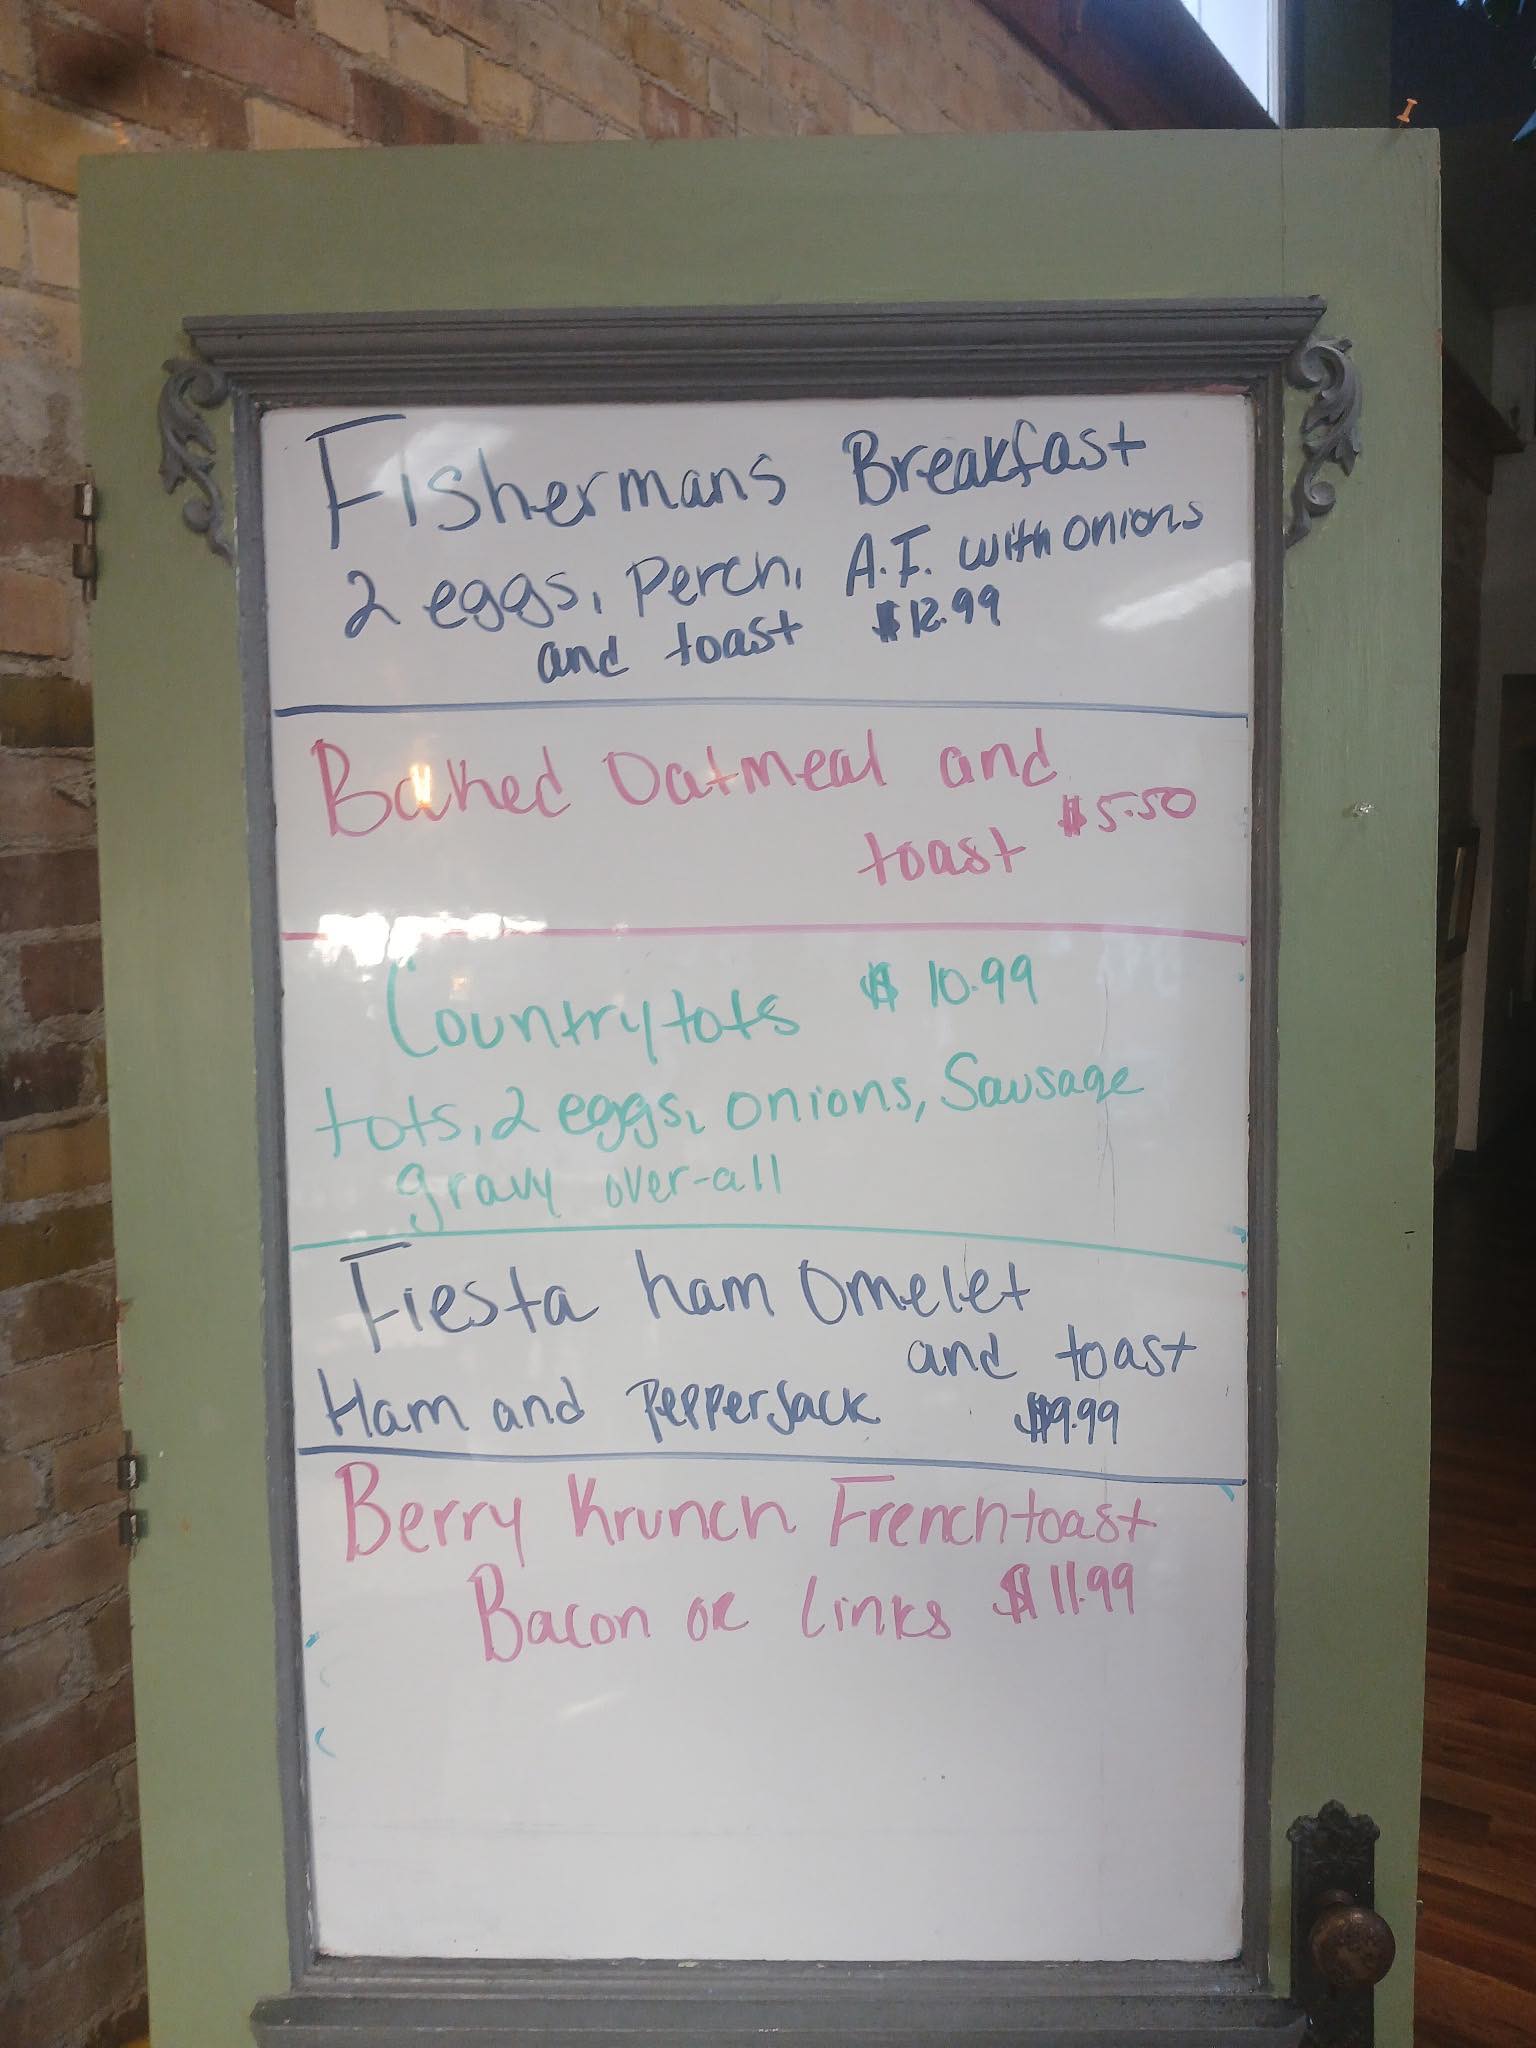 Fishermans Breakfast
2 eggs, Perch, A.F. with onions
and toast $12.99
Baked Oatmeal and
toast $5.50
Country tots $10.99
tots, 2 eggs, onions, Sausage
gravy over-all
Fiesta ham Omelet
and toast
Ham and PepperJack $9.99
Berry Krunch French toast
Bacon or links $11.99